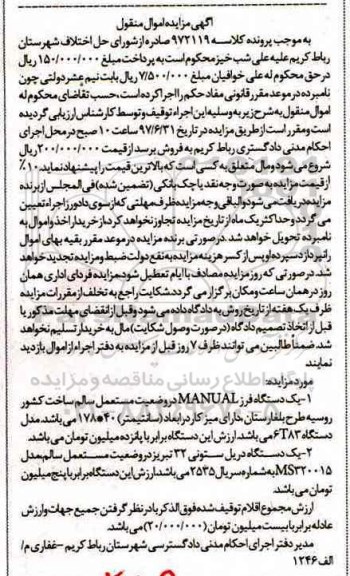 آگهی مزایده اموال منقول
به موجب پرونده کلاسه ۹۷۲۱۱۹ صادره از شورای حل اختلاف شهرستان
رباط کریم علیه علی شب خیز محکوم است به پرداخت مبلغ ۱۵۰/۰۰۰/۰۰۰ ریال
در حق محکوم له علی خوافیان مبلغ ۷/۵۰۰/۰۰۰ ریال بابت نیم عشر دولتی چون
نامبرده در موعد مقرر قانونی مفاد حکم را اجرا کرده است، حسب تقاضای محکوم له
اموال منقول به شرح زیر به وسیله این اجراء توقیف و توسط کارشناس ارزیابی گردیده
است و مقرر است از طریق مزایده در تاریخ ۹۷/۶/۳۱ ساعت ۱۰ صبح در محل اجرای
احکام مدنی دادگستری رباط کریم به فروش برسد از قیمت ۲۰۰/۰۰۰/۰۰۰ ریال
شروع می شود و مال متعلق به کسی است که بالاترین قیمت را پیشنهاد نماید. ۱۰٪
از قیمت مزایده به صورت وجه نقد یا چک بانکی (تضمین شده) فی المجلس از برنده
مزایده دریافت می شود و الباقی وجه مزایده ظرف مهلتی که از سوی دادورز اجراء تعیین
می گردد و حداکثر یک ماه از تاریخ مزایده تجاوز نخواهد کرد از خریدار اخذ و اموال به
نامبرده تحویل خواهد شد. در صورتی برنده مزایده در موعد مقرر بقیه بهای اموال
را نپردازد سپرده او پس از کسر هزینه مزایده به نفع دولت ضبط و مزایده تجدید خواهد
شد. در صورتی که روز مزایده مصادف با ایام تعطیل شود مزایده فردای اداری همان
روز در همان ساعت و مکان برگزار می گردد. شکایت راجع به تخلف از مقررات مزایده
ظرف یک هفته از تاریخ روش به دادگاه داده می شود و قبل از انقضای مهلت مذکور یا
قبل از اتخاذ تصمیم دادگاه (در صورت وصول شکایت) مال به خریدار تسلیم نخواهد
شد. ضمناً طالبین می توانند ظرف ۷ روز قبل از مزایده به دفتر اجراء از اموال بازدید
نمایند
پایگاه اطلاع رسانی مناقصه و مزایده
مورد مزایده:
۱- یک دستگاه فرز MANUAL در وضعیت مستعمل سالم ساخت کشور
روسیه طرح بلغارستان دارای میز کار در ابعاد (سانتیمتر) ۴۰*۱۷۸ می باشد. مدل
دستگاه ۶T۸۳ می باشد. ارزش این دستگاه برابر با پانزده میلیون تومان می باشد.
۲- یک دستگاه دریل ستونی ۳۲ تبریز در وضعیت مستعمل سالم مدل
MS۳۲۰۰۱۵ به شماره سریال ۲۵۳۵ می باشد ارزش این دستگاه برابر با پنج میلیون
تومان می باشد.
ارزش مجموع اقلام توقیف شده فوق الذکر با در نظر گرفتن جمیع جهات و ارزش
عادله برابر با بیست میلیون تومان (۲۰/۰۰۰/۰۰۰) می باشد.
مدیر دفتر اجرای احکام مدنی دادگستری شهرستان رباط کریم - غفاری م/
الف ۱۲۴۶